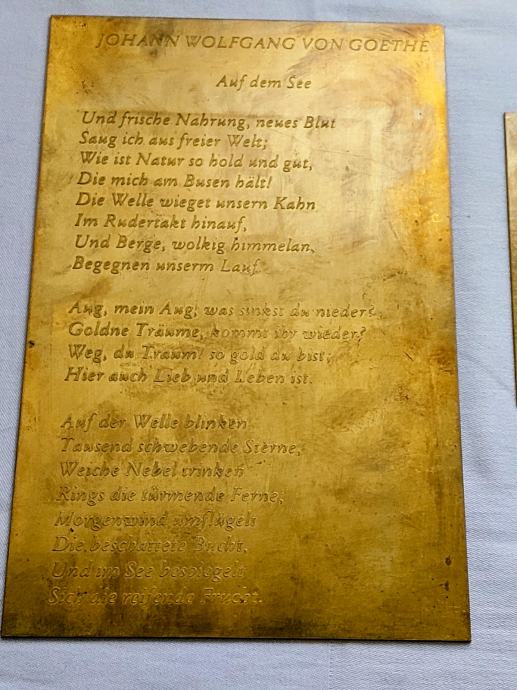 JOHANN WOLFGANG VON GOETHE
Auf dem See
Und frische Nahrung, neues Blut
Saug ich aus freier Welt;
Wie ist Natur so hold und gut,
Die mich am Busen hält!
Die Welle wieget unsern Kahn
Im Rudertakt hinauf,
Und Berge, wolkig himmelan,
Begegnen unserm Lauf.
Aug, mein Aug, was sinkst du nieder?
Goldne Träume, kommt ihr wieder?
Weg, du Traum! so gold du bist;
Hier auch Lieb und Leben ist.
Auf der Welle blinken
Tausend schwebende Sterne,
Weiche Nebel trinken
Rings die türmende Ferne;
Morgenwind umflügelt
Die beschattete Bucht,
Und im See bespiegelt
Sich die reifende Frucht.